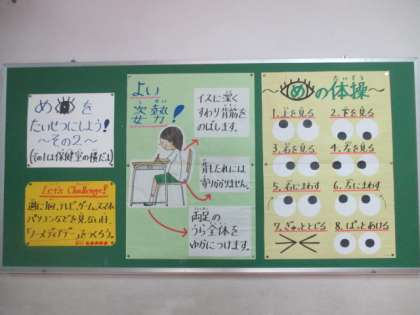 め を
たいせつにしよう!
～その2～
(その1は保健室の横だよ)
Let's Challenge!
週に1回、テレビ、ゲーム、スマホ
パソコンなどを見ない日、
「ノーメディアデー」をつくろう。
よい
姿勢!
イスに深く
すわり背筋を
のばします。
背もたれには
よりかかりません。
両足の
うら全体を
ゆかにつけます。
～めの体操～
たいそう
1.上を見る
2.下を見る
3.右を見る
4.左を見る
5.右にまわす
6.左にまわす
7.ぎゅっととじる
8.ぱっとあける